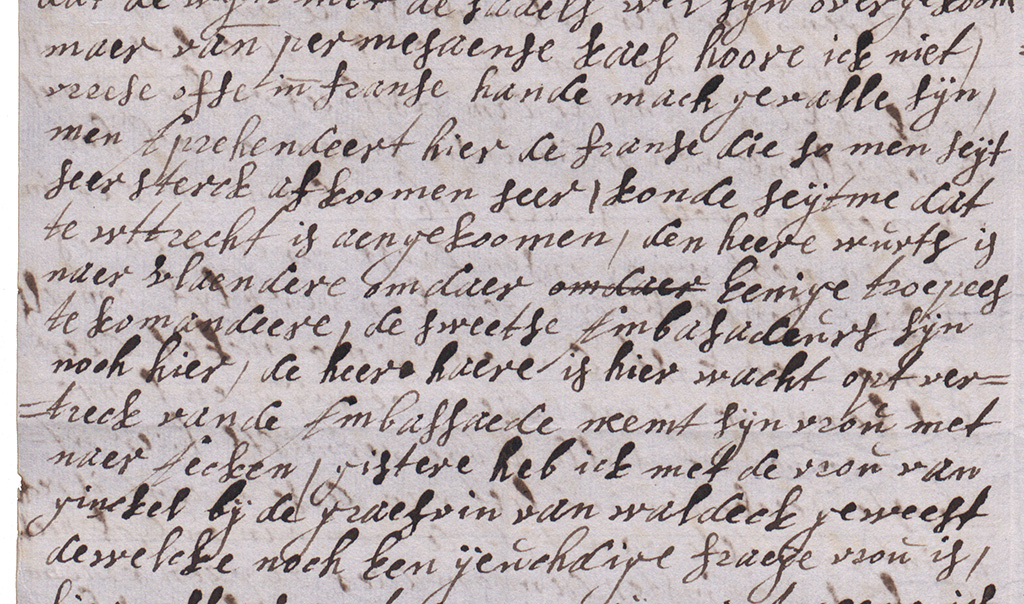 dat de wijn met de sadels wel sijn overgekoom
maer van permesaense kaes hoore ick niet,
vrese offe in franse hande mach gevalle sijn,
men aprehendeert hier de franse die so men seijt
seer sterck af koomen seer, konde seijtme dat
te wttrecht is aengekoomen, den heere wurts is
naer vlaendere omdaer omdaer eenige troepees
te komandeere, de sweetse Embasadeurs sijn
noch hier, de heere haere is hier wacht opt ver=
=treck vande Embassaede neemt sijn vrou met
naer, gistere heb ick met de vrou van
ginckel bij de graefvin van waldeck geweest
dewelcke noch een ijeuchdige fraeije vrou is,